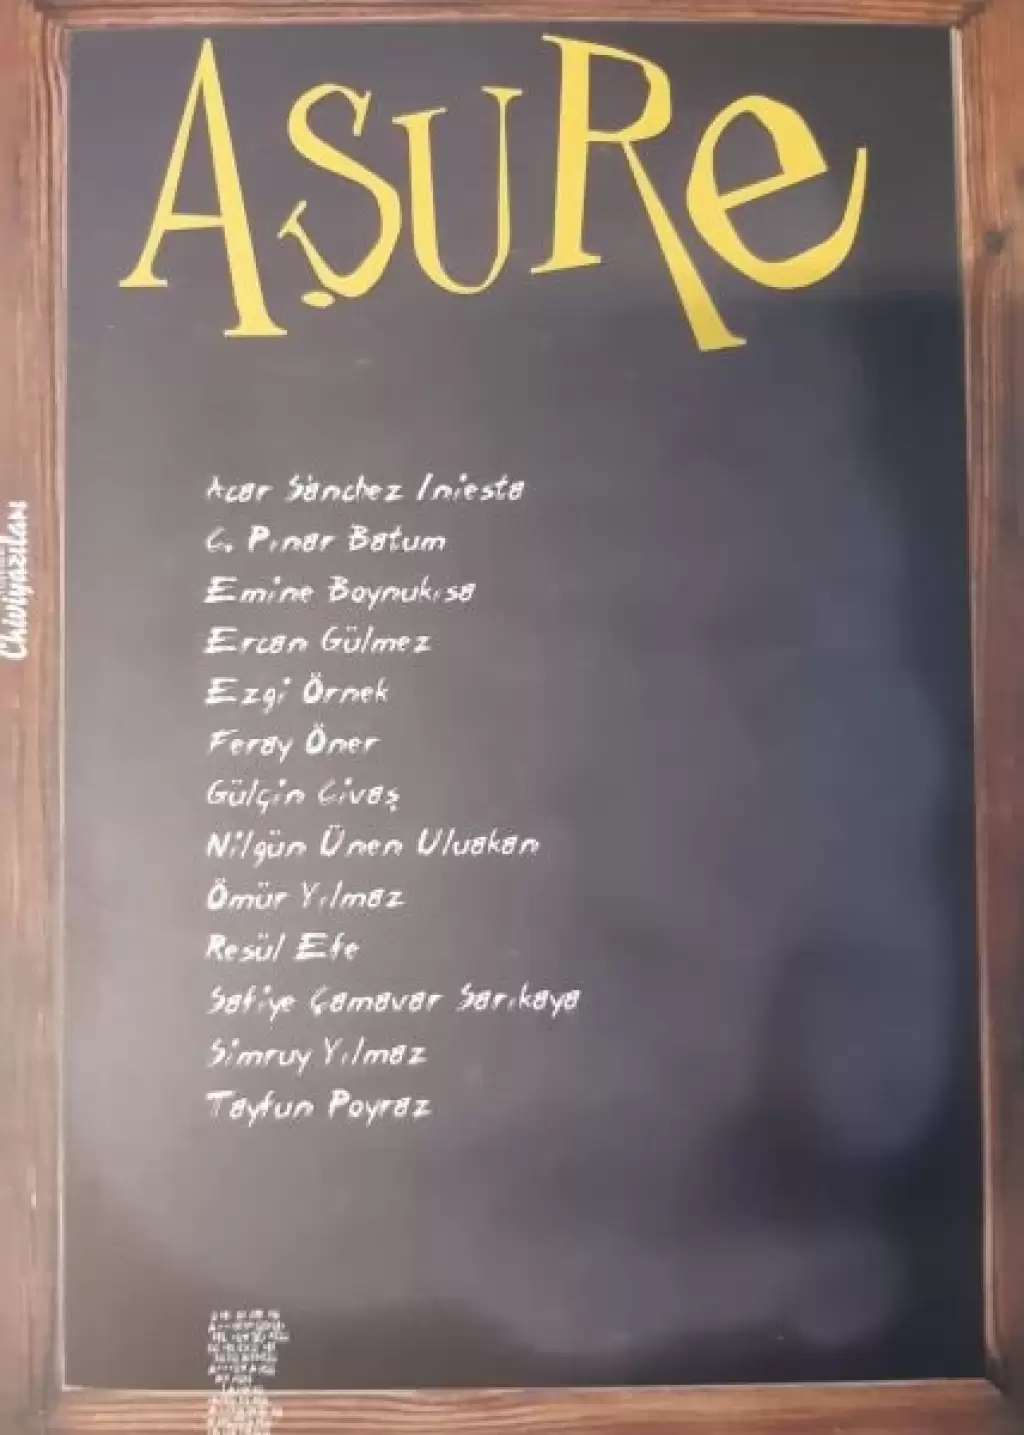 AŞURe
Acar Sànchez Iniesta
Ç. Pınar Batum
Emine Boynukısa
Ercan Gülmez
Ezgi Örnek
Feray Öner
Gülçin Çivaş
Nilgün Ünen Uluakan
Ömür Yılmaz
Resül Efe
Safiye Çamavar Sarıkaya
Simruy Yılmaz
Tayfun Poyraz
Chiviyazıları